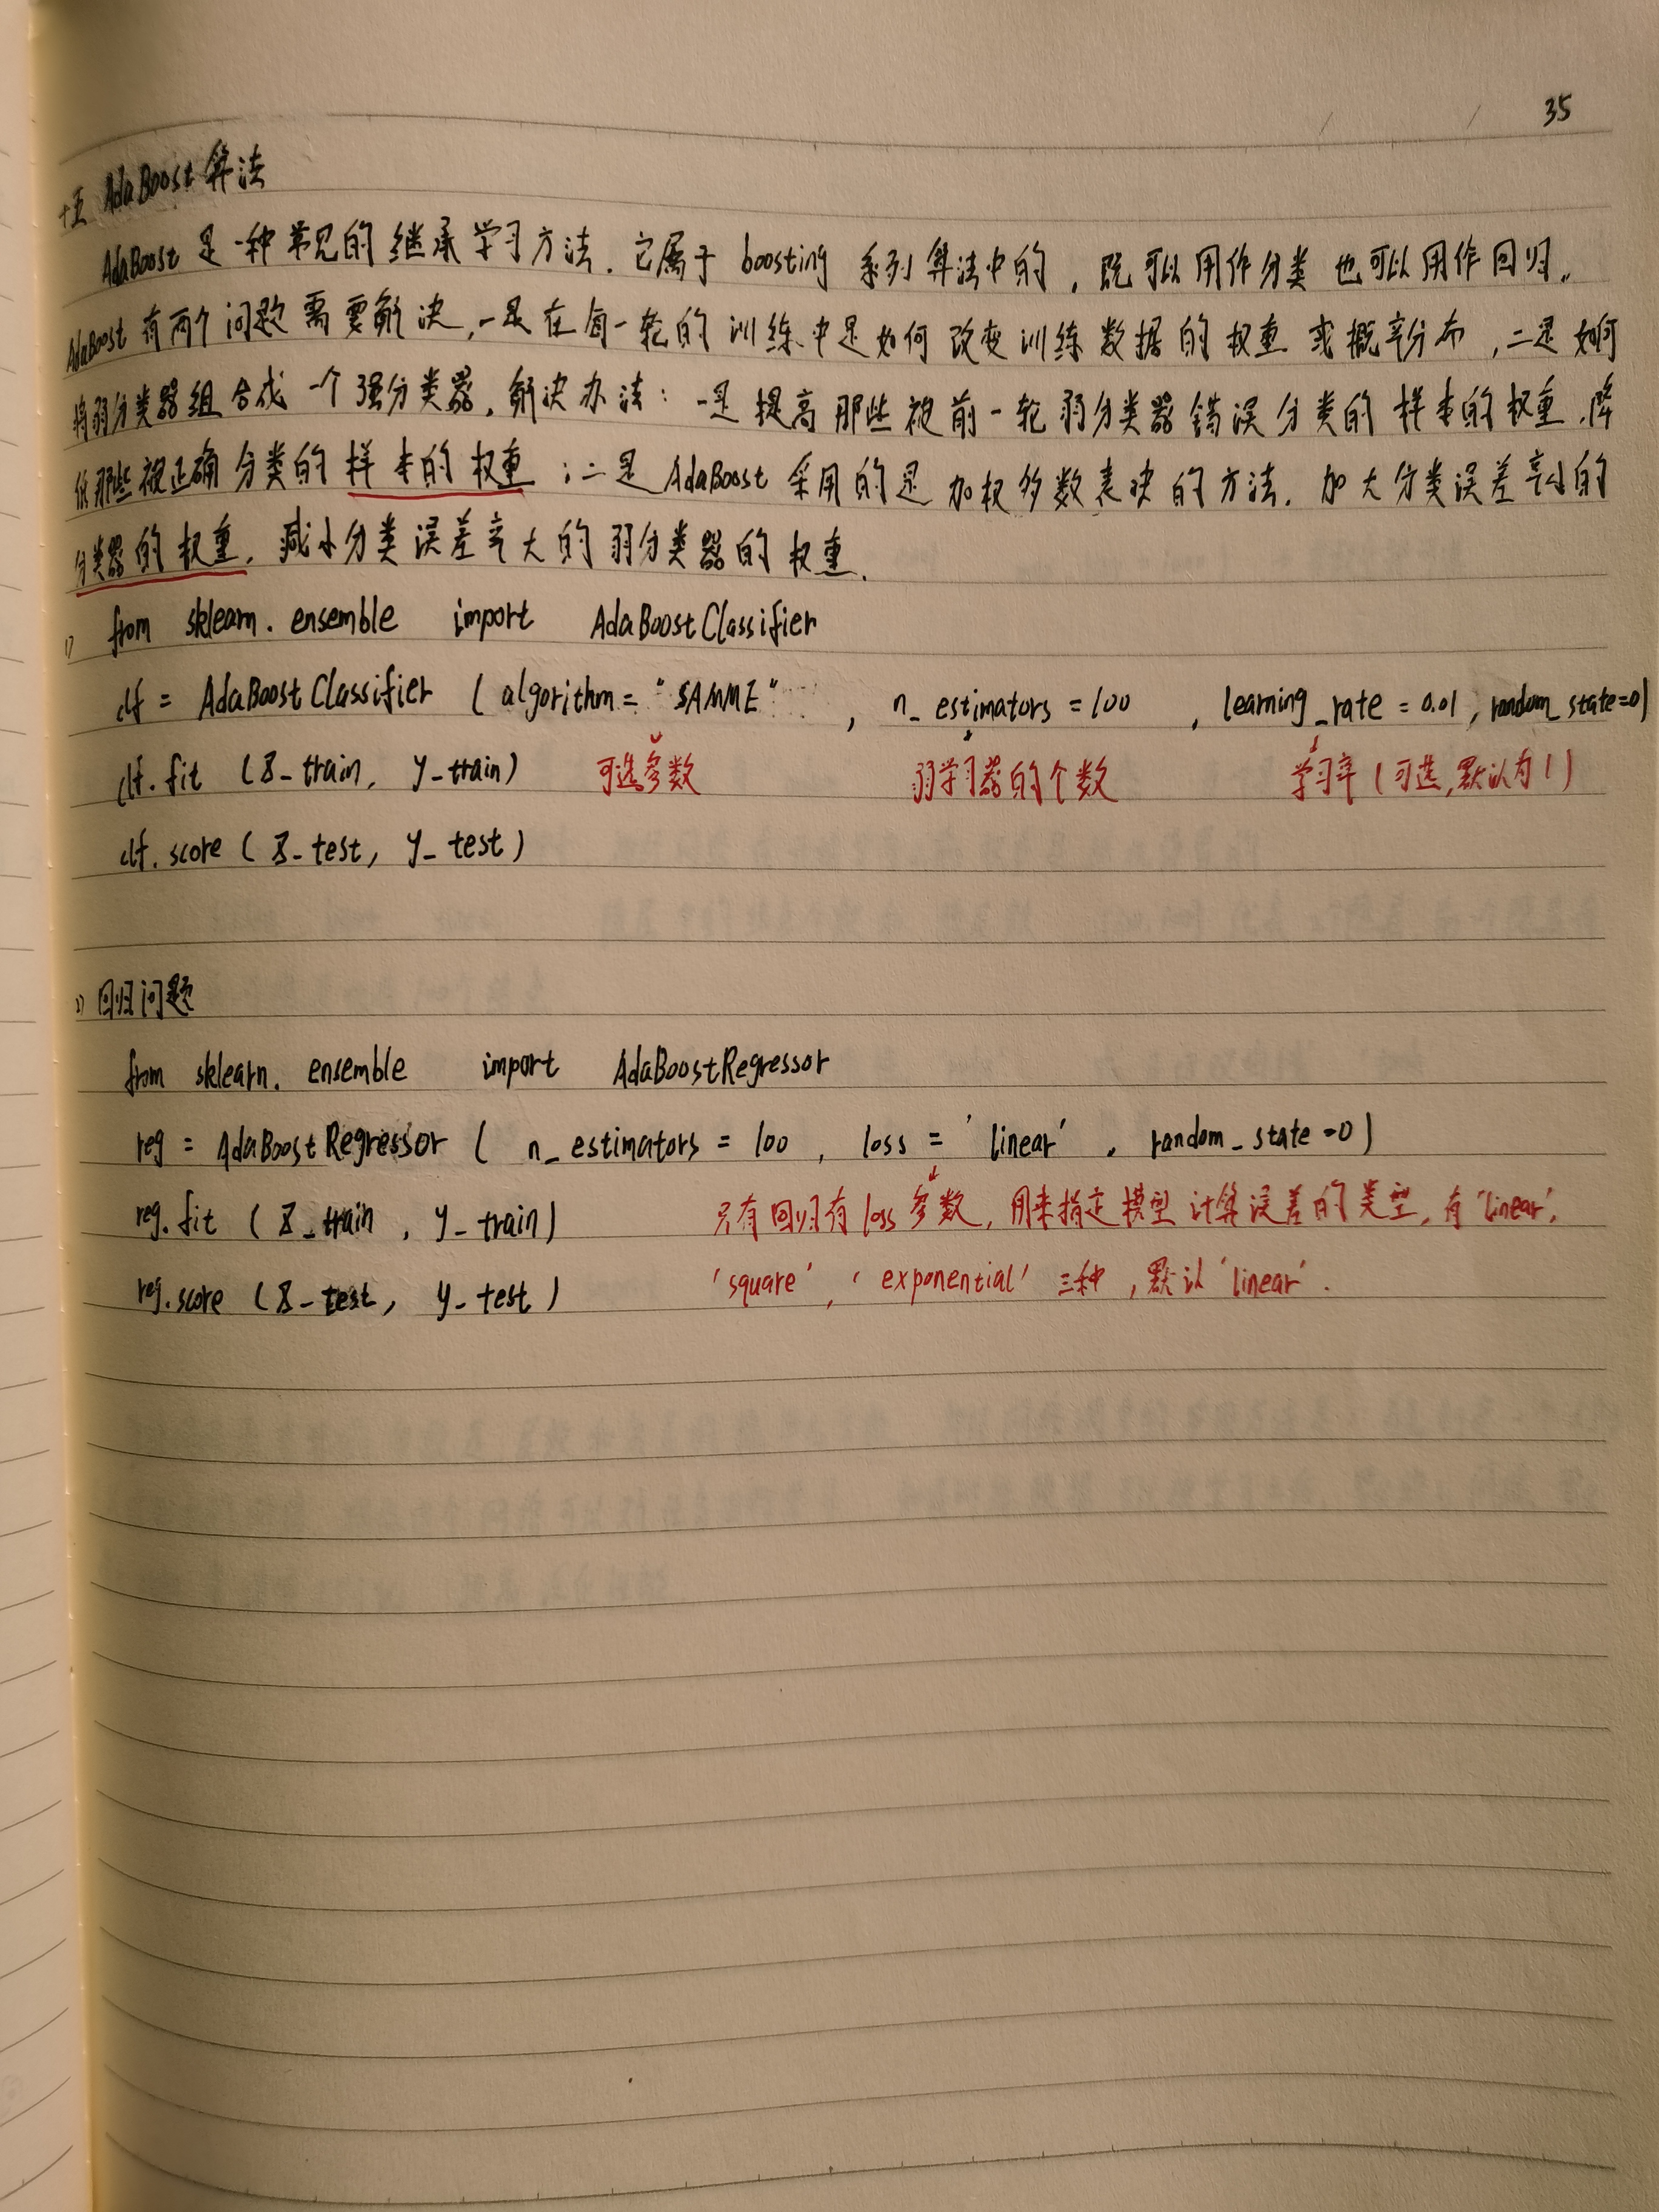 35
十五 AdaBoost 算法
AdaBoost 是一种常见的继承学习方法．它属于 boosting 系列算法中的，既可以用作分类也可以用作回归。
AdaBoost 有两个问题需要解决，一是在每一轮的训练中是如何改变训练数据的权重或概率分布，二是如何
将弱分类器组合成一个强分类器，解决办法：一是提高那些被前一轮弱分类器错误分类的样本的权重，降
低那些被正确分类的样本的权重；二是 AdaBoost 采用的是加权多数表决的方法．加大分类误差率小的
分类器的权重，减小分类误差率大的弱分类器的权重．
1) from sklearn. ensemble import AdaBoostClassifier
clf = AdaBoostClassifier ( algorithm = "SAMME" , n_ estimators = 100 , learning_rate = 0.01 , random_state=0)
clf. fit (X_train, y_train) 可选参数 弱学习器的个数 学习率 (可选,默认为1)
clf. score ( X_test, y_test )
2) 回归问题
from sklearn. ensemble import AdaBoostRegressor
reg = AdaBoostRegressor ( n_estimators = 100 , loss = 'linear' , random_state=0)
reg. fit ( X_train , y_train) 只有回归有 loss 参数，用来指定模型计算误差的类型，有 'linear',
reg. score (X_test, y_test ) 'square' , 'exponential' 三种，默认 'linear' .